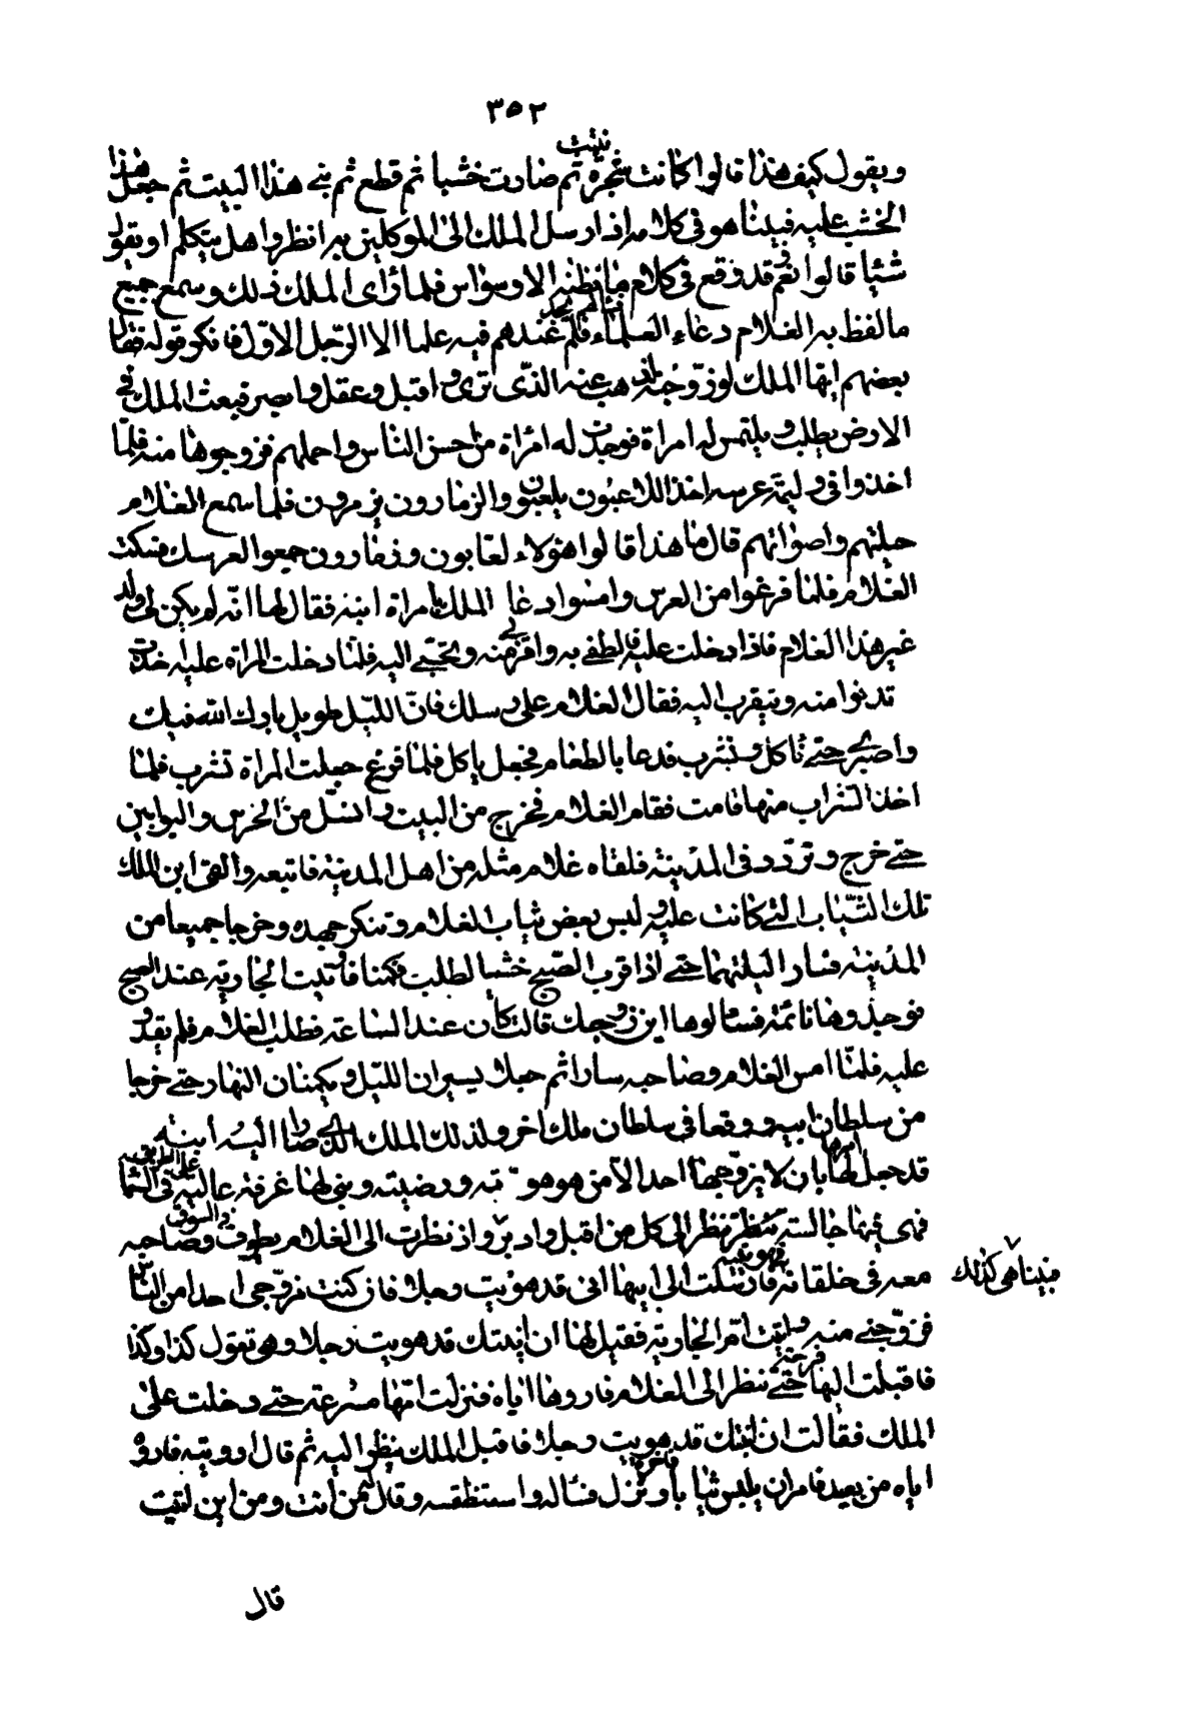 ٣٥٢
ويقول كيف هذا قالوا كانت شجرة نبتت ثم صارت خشبا ثم قطع ثم بنى هذا البيت ثم جعل هذا
الخشب عليه فبينا هو في كلامه اذ ارسل الملك الى الموكلين به انظروا هل يتكلم او يقول
شيئا قالوا نعم قد وقع في كلام ما نظنه الا وسواس فلما رأى الملك ذلك وسمع جميع
ما لفظ به الغلام دعاء العلماء فسألهم فلم يجد عندهم فيه علما الا الرجل الاول فانكر قوله فقال
بعضهم ايها الملك لو زوجته لذهب عنه الذي ترى واقبل وعقل وابصر فبعث الملك في
الارض يطلب ويلتمس له امراة فوجدت له امرأة من احسن الناس واجملهم فزوجوها منه فلما
اخذوا في وليمة عرسه اخذ اللاعبون يلعبون والزمارون يزمرون فلما سمع الغلام
جلبتهم واصواتهم قال ما هذا قالوا هؤلاء لعابون وزمارون جمعوا لعرسك فسكت
الغلام فلما فرغوا من العرس وامسوا دعا الملك بامراة ابنه فقال لها انه لم يكن لي ولد
غير هذا الغلام فاذا دخلت عليه فالطفي به واقربي منه وتحببي اليه فلما دخلت المراة عليه اخذت
تدنوا منه ويتقرب اليه فقال الغلام على رسلك فان الليل طويل بارك الله فيك
واصبري حتى نأكل ونشرب فدعا بالطعام فجعل يأكل فلما فرغ جعلت المراة تشرب فلما
اخذ الشراب منها نامت فقام الغلام فخرج من البيت وانسل من الحرس والبوابين
حتى خرج وتردد في المدينة فلقاه غلام مثله من اهل المدينة فاتبعه والقى ابن الملك
تلك الثياب التي كانت عليه ولبس بعض ثياب الغلام وتنكر جهده وخرجا جميعا من
المدينة فسارا ليلتهما حتى اذا قرب الصبح خشيا الطلب فكمنا فاتيت الجارية عند الصبح
فوجدوها نائمة فسألوها اين زوجك قالت كان عندي الساعة فطلب الغلام فلم يقدر
عليه فلما امسى الغلام وصاحبه سارا ثم جعلا يسيران الليل ويكمنان النهار حتى خرجا
من سلطان ابيه ووقعا في سلطان ملك اخر ولذلك الملك الذي صارا اليه ابنة
قد جعل لها ابوها بان لا يزوجها احدا الا من هويته ورضيته وبنى لها غرفة عالية في السماء على الطريق
فهي فيها جالسة تنظر الى كل من اقبل وادبر واذ نظرت الى الغلام يطوف في السوق وصاحبه
فبينا هي كذلك
معه في خلقانه فهويته فارسلت الى ابيها اني قد هويت رجلا فان كنت مزوجي احدا من الناس
فزوجني منه واتيت ام الجارية فقيل لها ان ابنتك قد هويت رجلا وهي تقول كذا وكذا
فاقبلت اليها فرحة حتى تنظر الى الغلام فاروها اياه فنزلت امها مسرعة حتى دخلت على
الملك فقالت ان ابنتك قد هويت رجلا فاقبل الملك ينظر اليه ثم قال ارونيه فاروه
اياه من بعيد فامر ان يلبس ثيابا ونزل فسأله واستنطقه وقال من انت ومن اين اتيت
قال